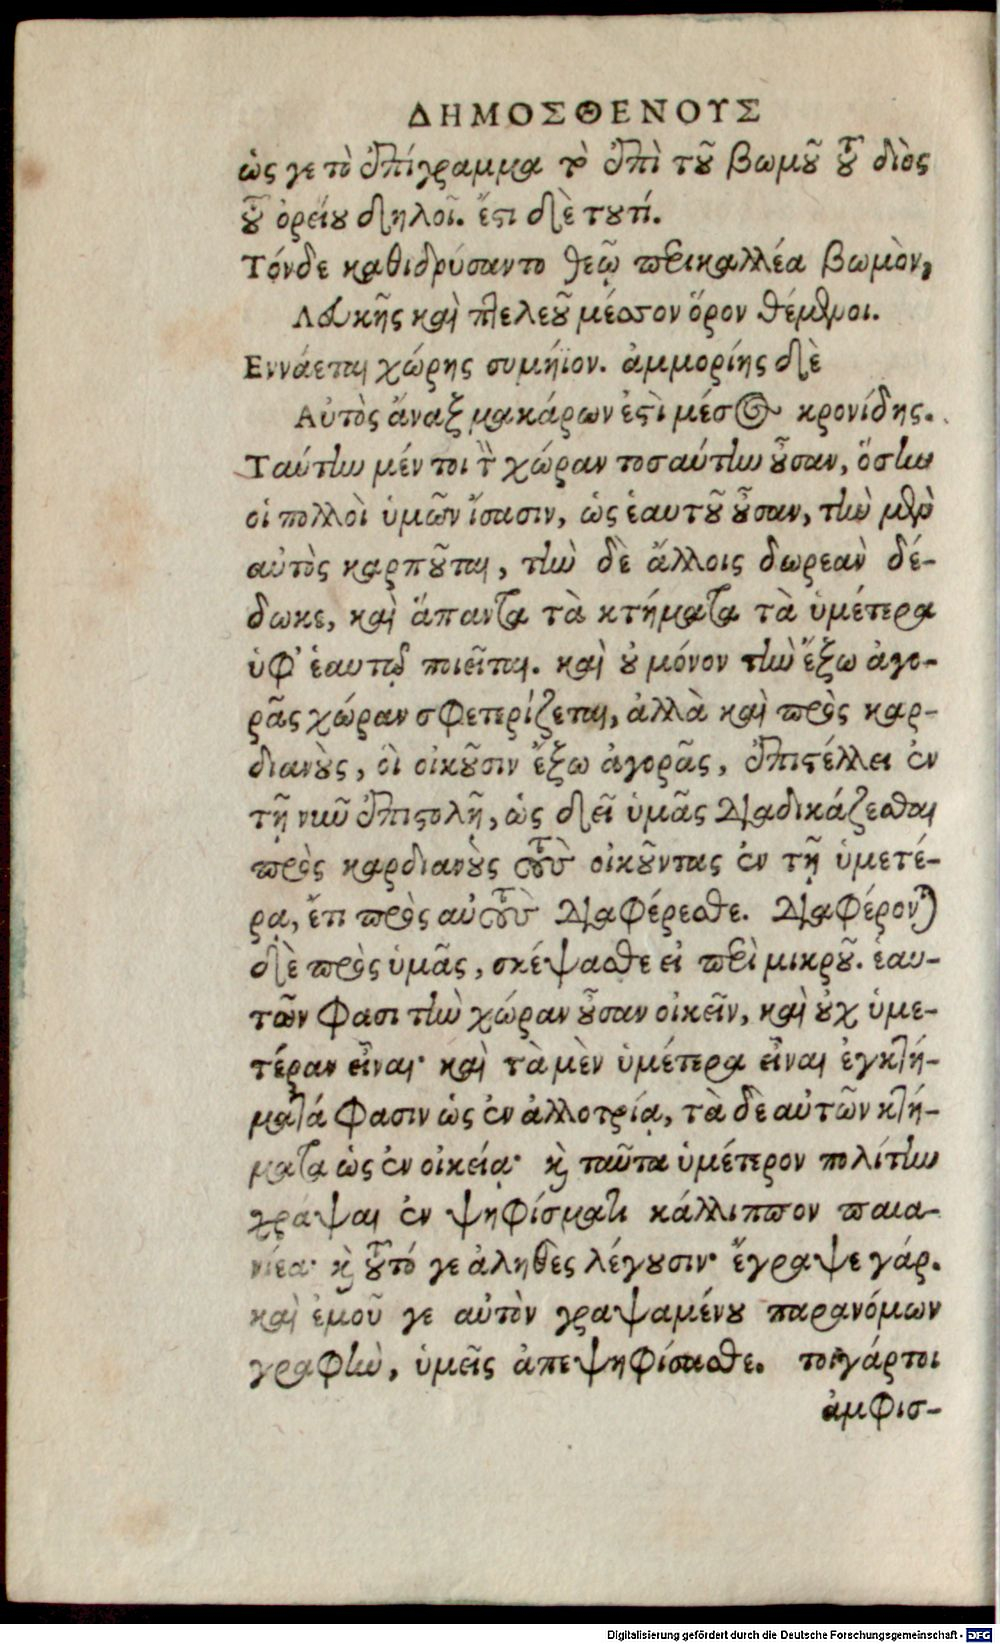 ΔΗΜΟΣΘΕΝΟΥΣ
ὡς γε τὸ ἐπίγραμμα τὸ ἐπὶ τοῦ βωμοῦ τοῦ διὸς
τοῦ ὁρείου δηλοῖ. ἔστι δὲ τουτί.
Τόνδε καθιδρύσαντο θεῷ περικαλλέα βωμὸν,
Λευκῆς καὶ πτελεοῦ μέσσον ὅρον θέμενοι.
Ἐννάεται χώρης συμήϊον. ἀμμορίης δὲ
Αὐτὸς ἄναξ μακάρων ἐστὶ μέσος κρονίδης.
Ταύτην μέν τοι τὴν χώραν τοσαύτην οὖσαν, ὅσην
οἱ πολλοὶ ὑμῶν ἴσασιν, ὡς ἑαυτοῦ οὖσαν, τὴν μὲν
αὐτὸς καρποῦται, τὴν δὲ ἄλλοις δωρεὰν δέ-
δωκε, καὶ ἅπαντα τὰ κτήματα τὰ ὑμέτερα
ὑφ' ἑαυτῷ ποιεῖται. καὶ οὐ μόνον τὴν ἔξω ἀγο-
ρᾶς χώραν σφετερίζεται, ἀλλὰ καὶ πρὸς καρ-
διανοὺς, οἳ οἰκοῦσιν ἔξω ἀγορᾶς, ἐπιστέλλει ἐν
τῇ νυῦ ἐπιστολῇ, ὡς δεῖ ὑμᾶς διαδικάζεσθαι
πρὸς καρδιανοὺς τοὺς οἰκοῦντας ἐν τῇ ὑμετέ-
ρᾳ, ἔτι πρὸς αὐτοὺς διαφέρεσθε. διαφέρονται
δὲ πρὸς ὑμᾶς, σκέψασθε εἰ περὶ μικροῦ. ἑαυ-
τῶν φασι τὴν χώραν οὖσαν οἰκεῖν, καὶ οὐχ ὑμε-
τέραν εἶναι· καὶ τὰ μὲν ὑμέτερα εἶναι ἐγκτή-
ματά φασιν ὡς ἐν ἀλλοτρίᾳ, τὰ δὲ αὐτῶν κτή-
ματα ὡς ἐν οἰκείᾳ· καὶ ταῦτα ὑμέτερον πολίτην
γράψαι ἐν ψηφίσματι κάλλιππον παια-
νιέα· καὶ τοῦτό γε ἀληθὲς λέγουσιν· ἔγραψε γάρ.
καὶ ἐμοῦ γε αὐτὸν γραψαμένου παρανόμων
γραφὴν, ὑμεῖς ἀπεψηφίσασθε. τοιγάρτοι
ἀμφισ-
Digitalisierung gefördert durch die Deutsche Forschungsgemeinschaft - DFG